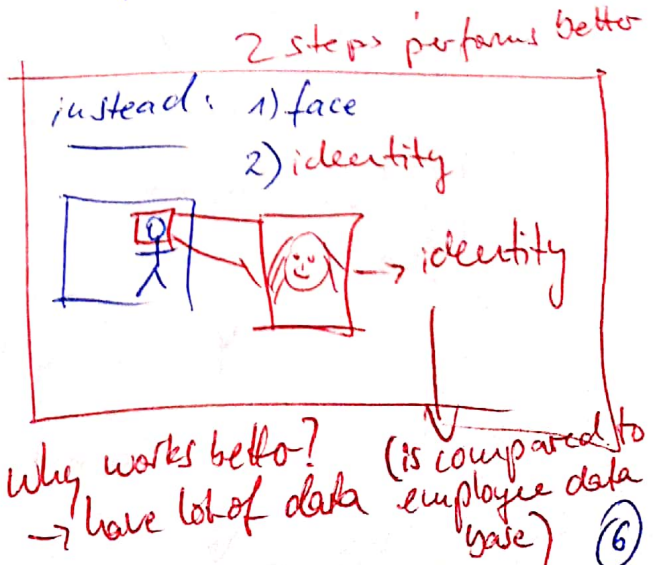 2 steps performs better
instead: 1) face
2) identity
→ identity
why works better?
→ have lot of data
(is compared to
employee data
base)
6